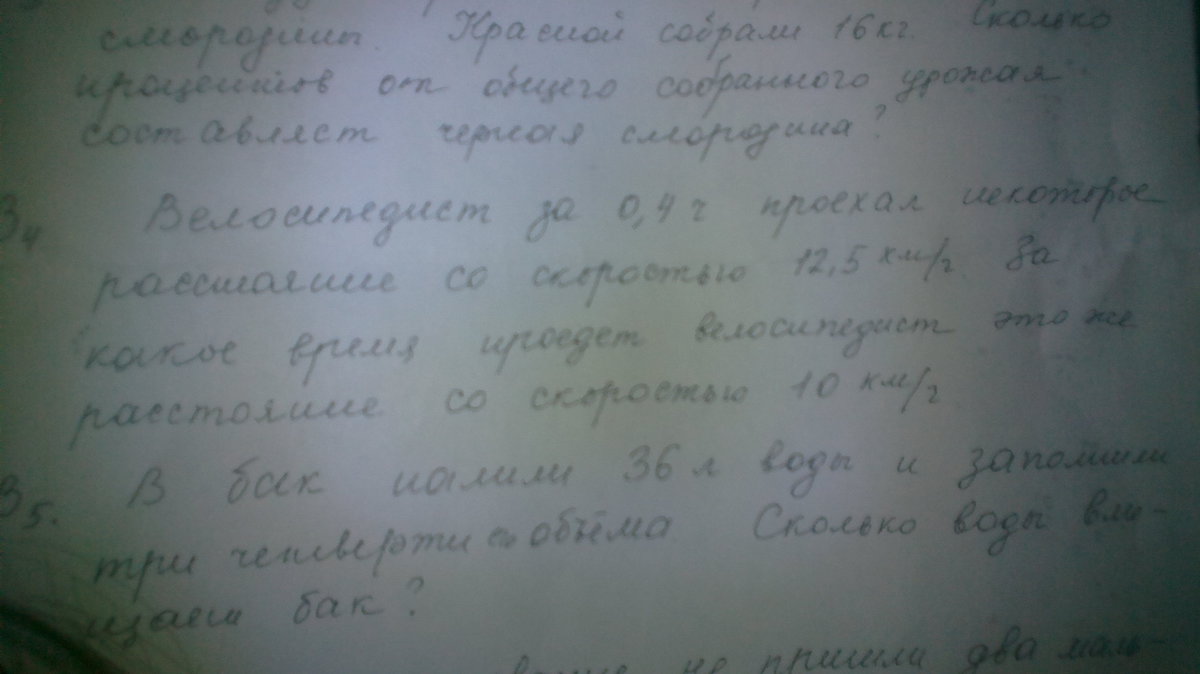 смородины. Красной собрали 16 кг. Сколько
процентов от общего собранного урожая
составляет черная смородина?
3₄ Велосипедист за 0,4 ч проехал некоторое
расстояние со скоростью 12,5 км/ч За
какое время проедет велосипедист это же
расстояние со скоростью 10 км/ч
3₅. В бак налили 36 л воды и заполнили
три четверти его объёма Сколько воды вме-
щает бак?
не пришли два маль-